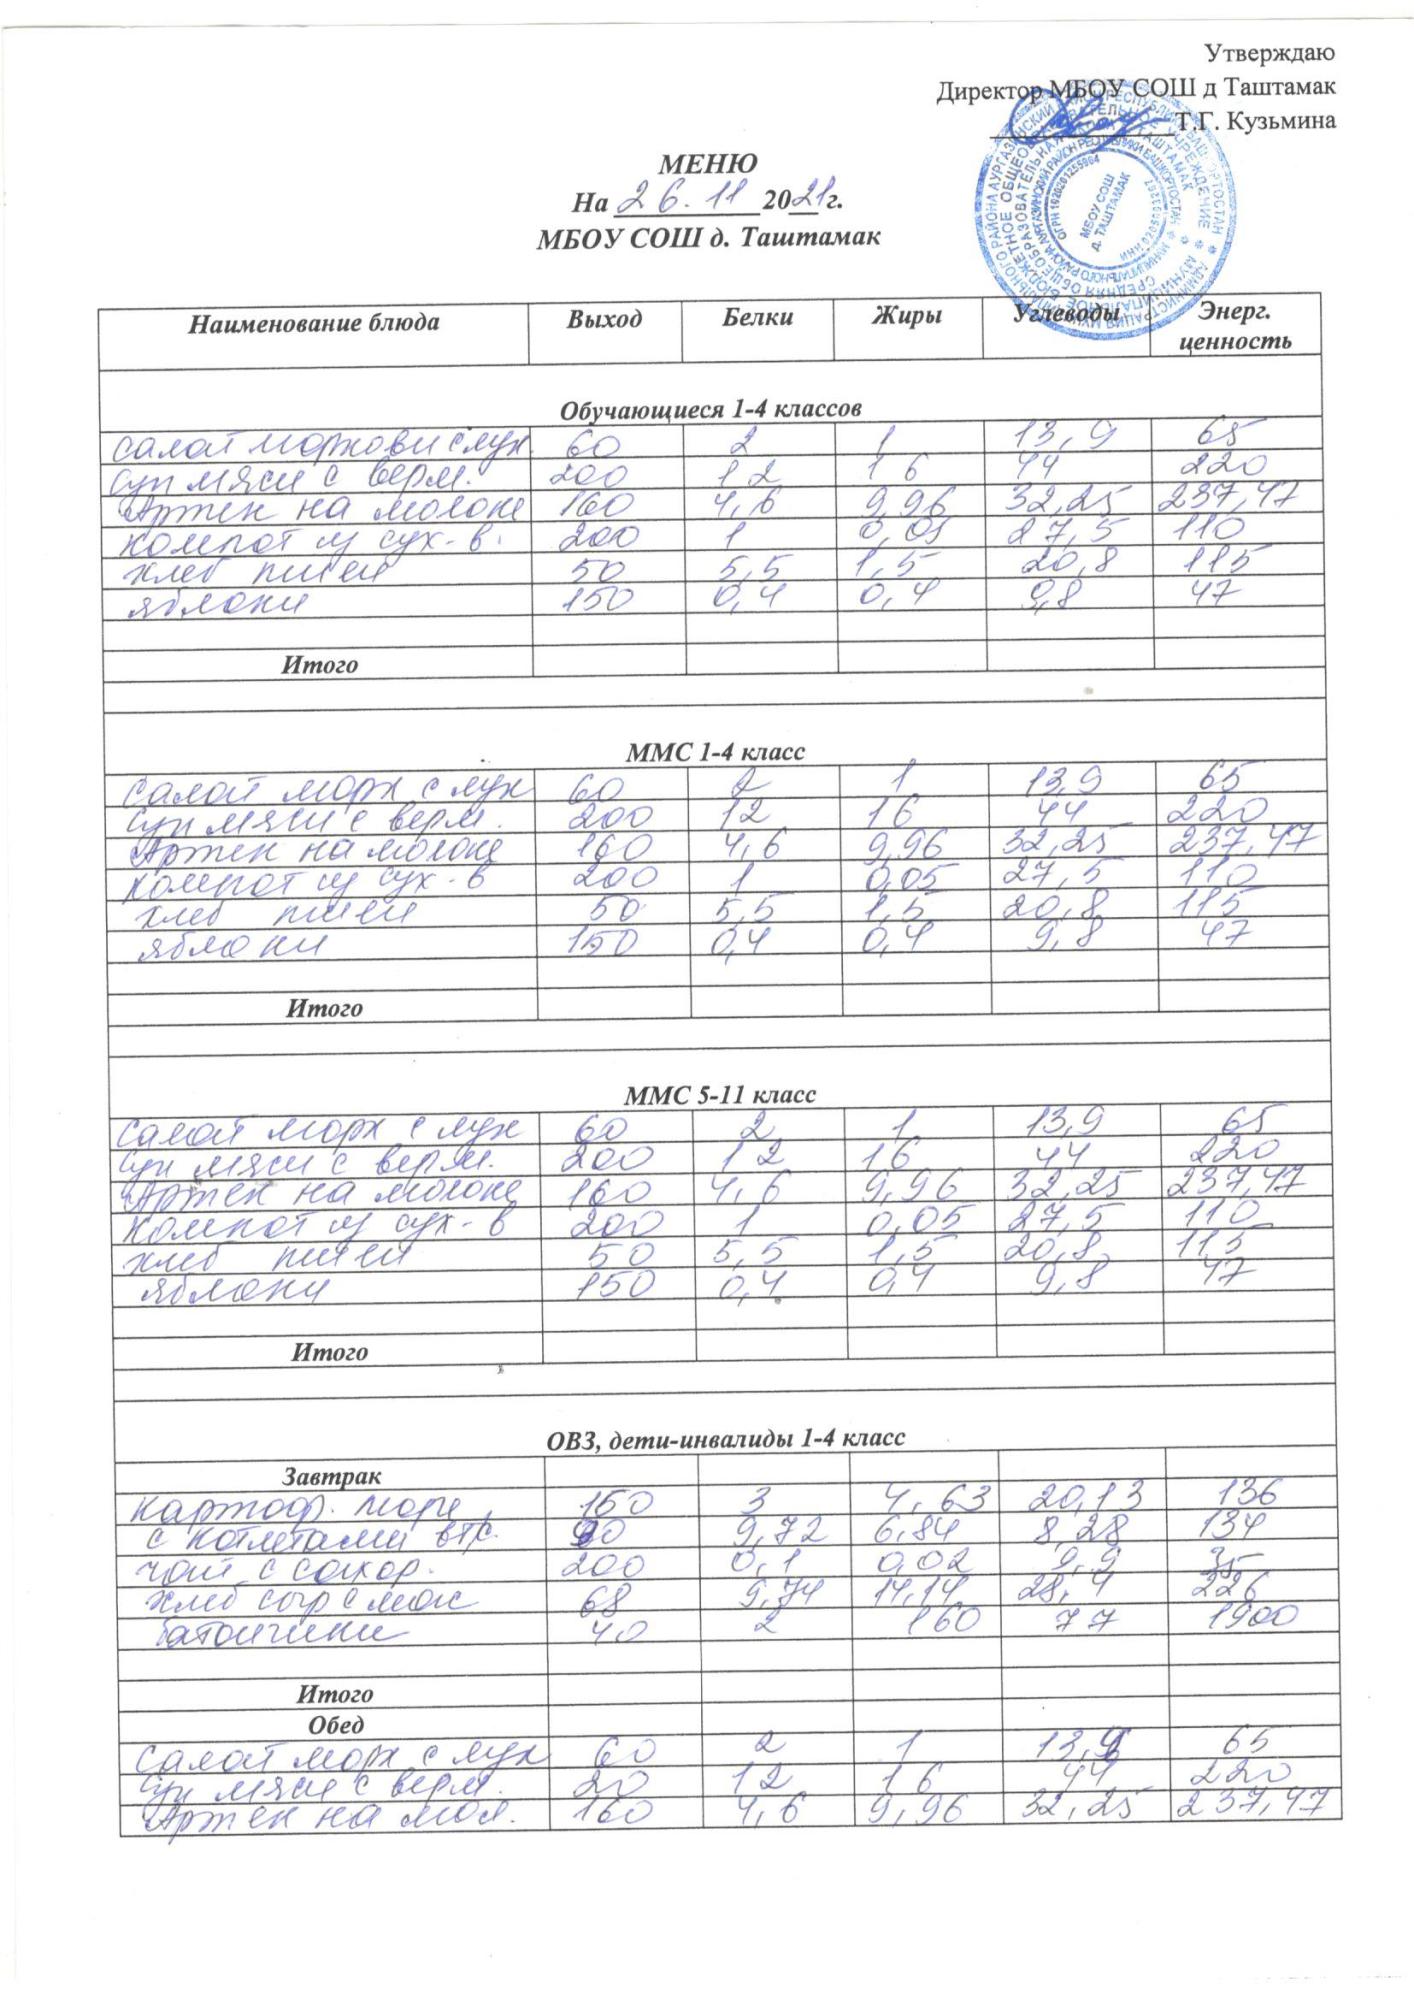 Утверждаю
Директор МБОУ СОШ д Таштамак
Т.Г. Кузьмина
МЕНЮ
На 26.11 2021г.
МБОУ СОШ д. Таштамак
Наименование блюда Выход Белки Жиры Углеводы Энерг. ценность
Обучающиеся 1-4 классов
салат моркови с лук. 60 2 1 13,9 65
суп мясн с верм. 200 12 16 44 220
Артек на молоке 160 4,6 9,96 32,25 237,47
компот из сух-в. 200 1 0,05 27,5 110
хлеб пшен 50 5,5 1,5 20,8 115
яблоки 150 0,4 0,4 9,8 47
Итого
ММС 1-4 класс
салат морк с лук 60 2 1 13,9 65
суп мясн с верм. 200 12 16 44 220
Артек на молоке 160 4,6 9,96 32,25 237,47
компот из сух-в 200 1 0,05 27,5 110
хлеб пшен 50 5,5 1,5 20,8 115
яблоки 150 0,4 0,4 9,8 47
Итого
ММС 5-11 класс
салат морк с лук 60 2 1 13,9 65
суп мясн с верм. 200 12 16 44 220
Артек на молоке 160 4,6 9,96 32,25 237,47
компот из сух-в 200 1 0,05 27,5 110
хлеб пшен 50 5,5 1,5 20,8 115
яблоки 150 0,4 0,4 9,8 47
Итого
ОВЗ, дети-инвалиды 1-4 класс
Завтрак
картоф. пюре 150 3 4,63 20,13 136
с котлетами 90 9,72 6,84 8,28 134
чай с сахар. 200 0,1 0,02 9,9 35
хлеб сыр с мас 68 9,74 14,14 28,4 226
батончики 40 2 160 77 1900
Итого
Обед
салат морк с лук 60 2 1 13,9 65
суп мясн с верм. 20 12 16 44 220
Артек на мол. 160 4,6 9,96 32,25 237,47
МБОУ СОШ
д. ТАШТАМАК